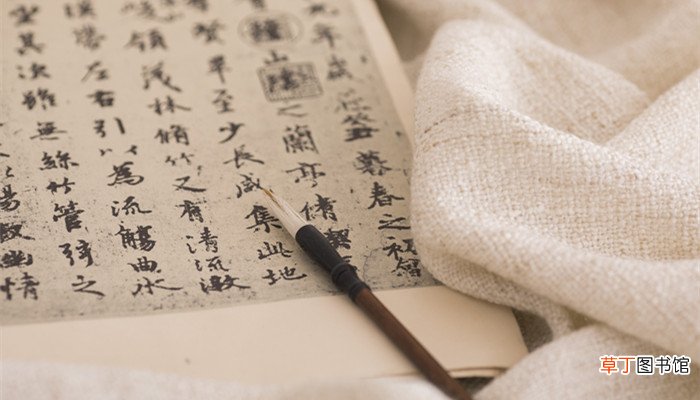 九年歲在癸丑暮春之初會
稽山陰之蘭亭脩稧
賢畢至少長咸集此地
峻領茂林脩竹又有清流激
帶左右引以為流觴曲水
坐其次雖無絲竹管弦之
暢敘幽情
草丁图书馆